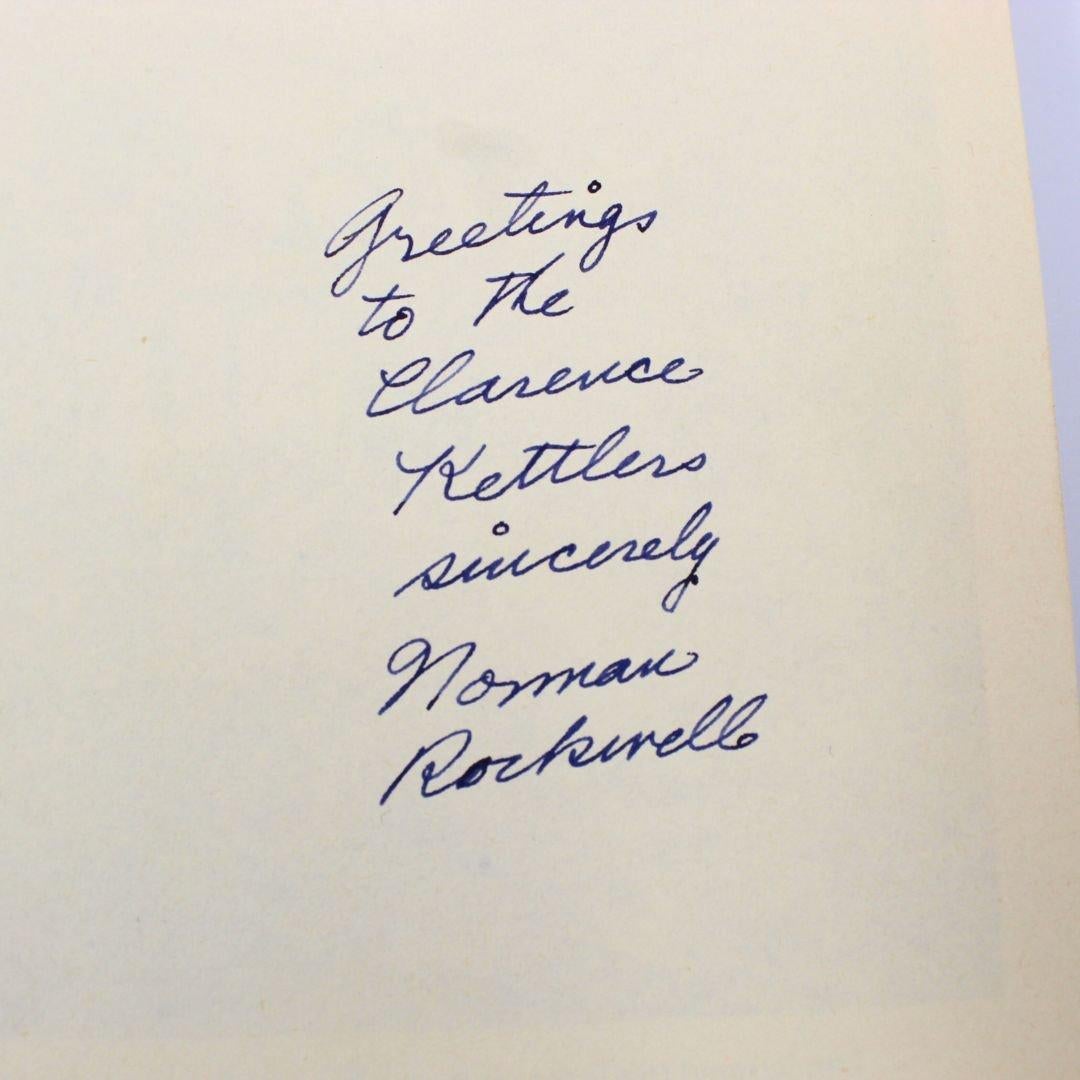 Greetings
to the
Clarence
Kettlers
sincerely
Norman
Rockwell